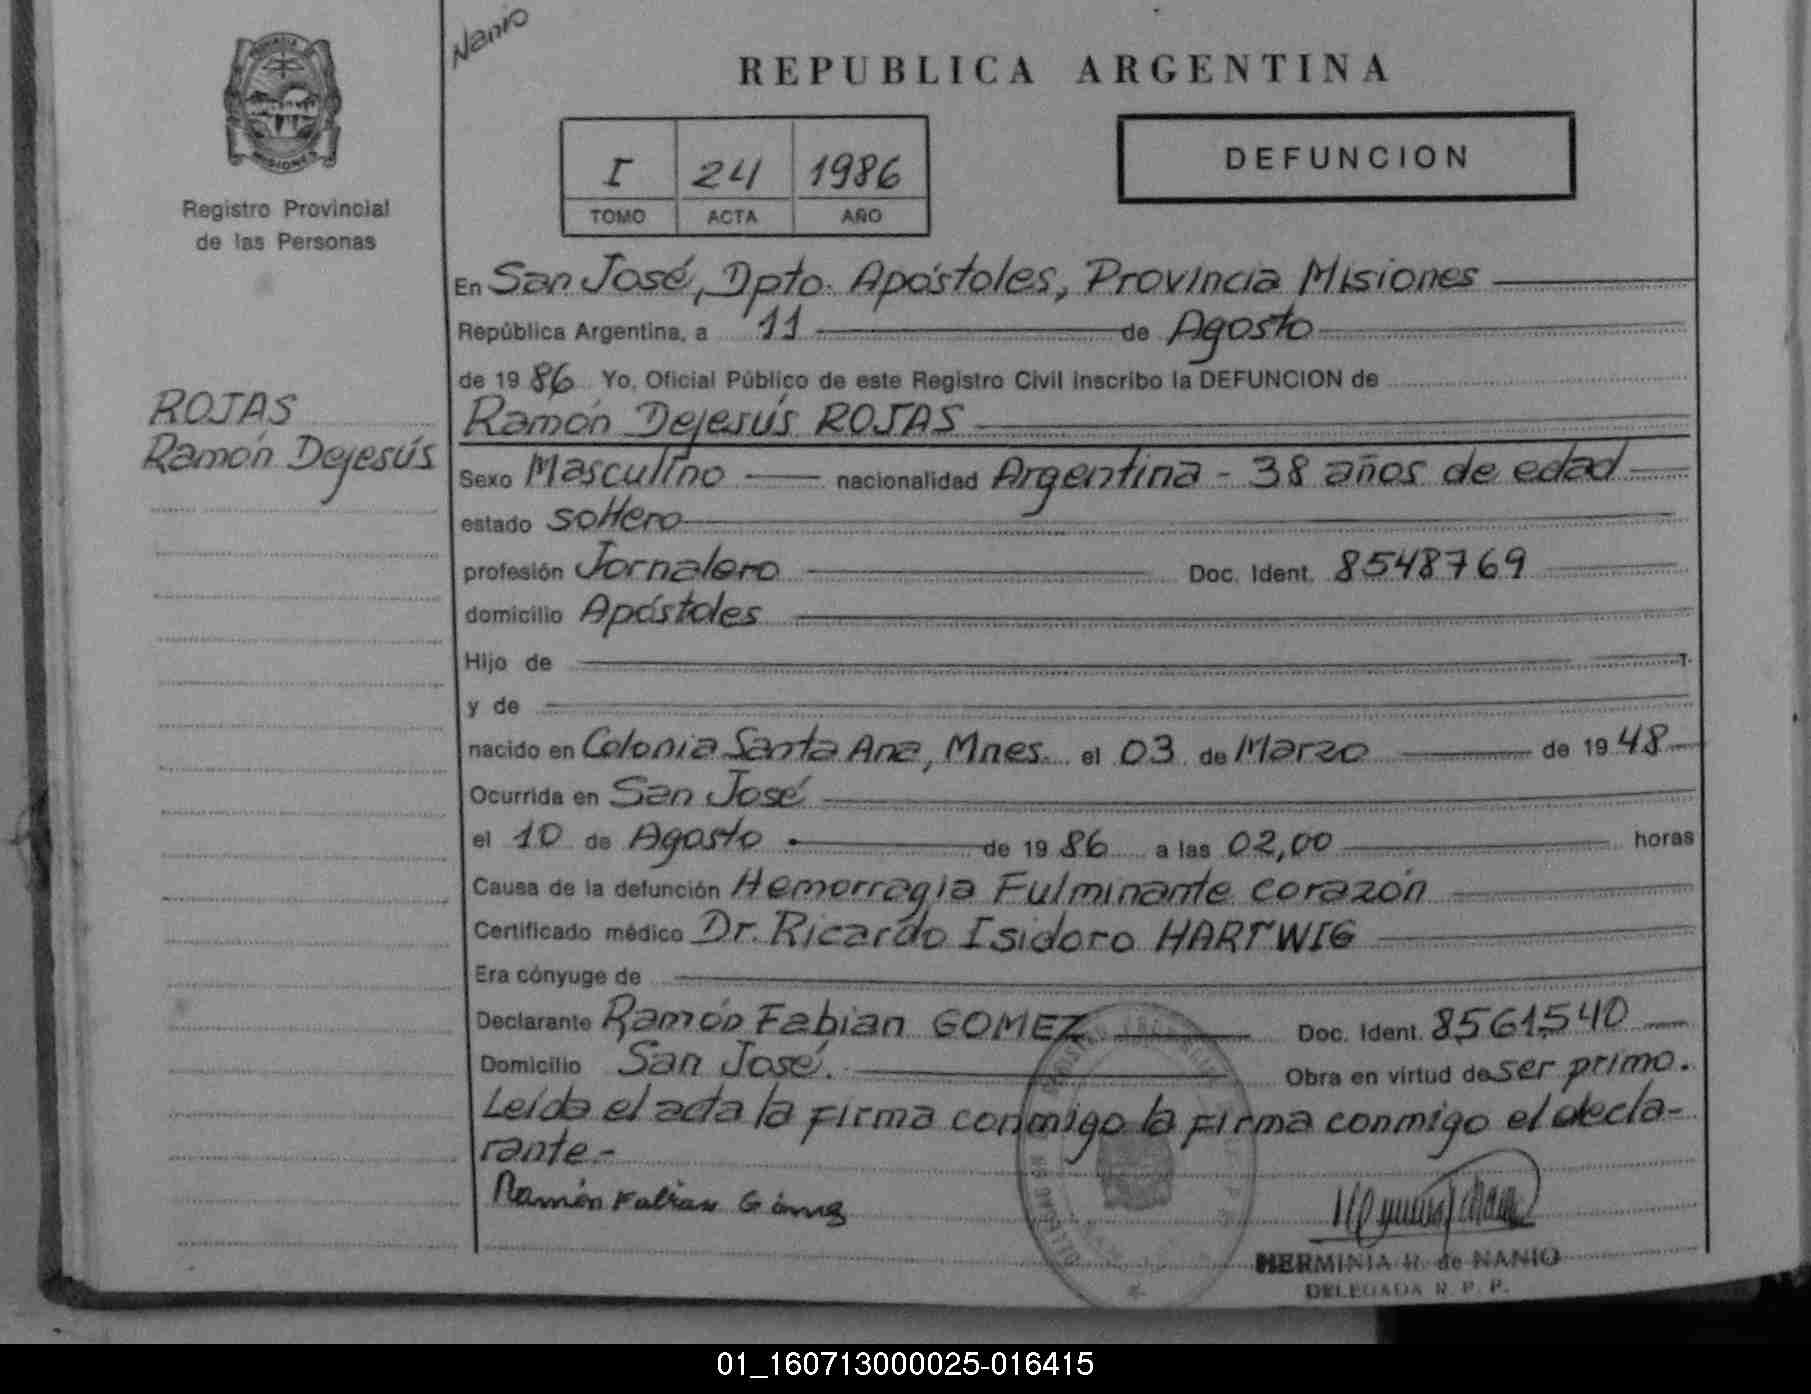 Nanio
REPUBLICA ARGENTINA
PROVINCIA DE
MISIONES
Registro Provincial
de las Personas
I 24 1986
TOMO ACTA AÑO
DEFUNCION
En San José, Dpto. Apóstoles, Provincia Misiones
República Argentina, a 11 de Agosto
de 19 86 Yo, Oficial Público de este Registro Civil inscribo la DEFUNCION de
ROJAS
Ramón Dejesús
Ramón Dejesús ROJAS
Sexo Masculino nacionalidad Argentina - 38 años de edad
estado soltero
profesión Jornalero Doc. Ident. 8548769
domicilio Apóstoles
Hijo de
y de
nacido en Colonia Santa Ana, Mnes. el 03 de Marzo de 19 48
Ocurrida en San José
el 10 de Agosto de 19 86 a las 02,00 horas
Causa de la defunción Hemorragia Fulminante corazón
Certificado médico Dr. Ricardo Isidoro HARTWIG
Era cónyuge de
Declarante Ramón Fabian GOMEZ Doc. Ident. 8561540
Domicilio San José. Obra en virtud de ser primo.
Leída el acta la firma conmigo la firma conmigo el decla-
rante.-
Ramón Fabian Gómez
HERMINIA R. de NANIO
DELEGADA R. P. P.
01_160713000025-016415